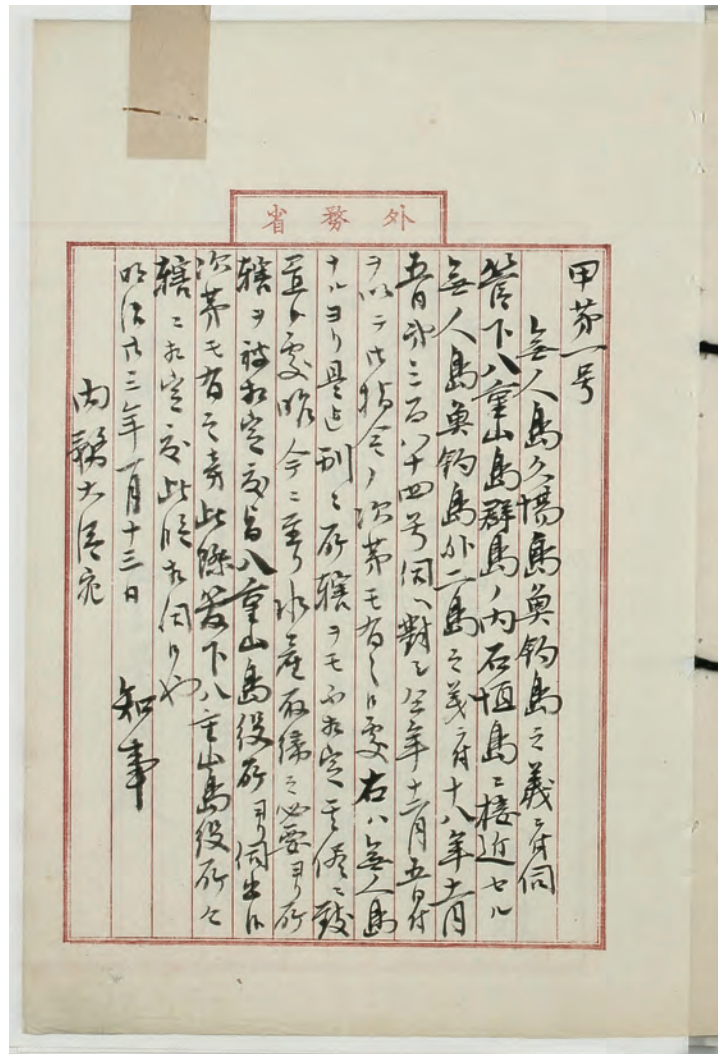 外務省
甲第一号
無人島久場島魚釣島之義ニ付伺
管下八重山島群島ノ内石垣島ニ接近セル
無人島魚釣島外二島之義ニ付十八年十一月
五日第三百八十四号伺ヘ對シ仝年十二月五日付
ヲ以テ御指令ノ次第モ有之候處右ハ無人島
ナルヨリ是迄別ニ所轄ヲモ不相定其儘ニ致
置候處昨今ニ至リ水産取締之必要ヨリ所
轄ヲ被相定度旨八重山島役所ヨリ伺出候
次第モ有之旁此際管下八重山島役所
轄ニ相定度此段相伺候也
明治廿三年一月十三日
知事
内務大臣宛